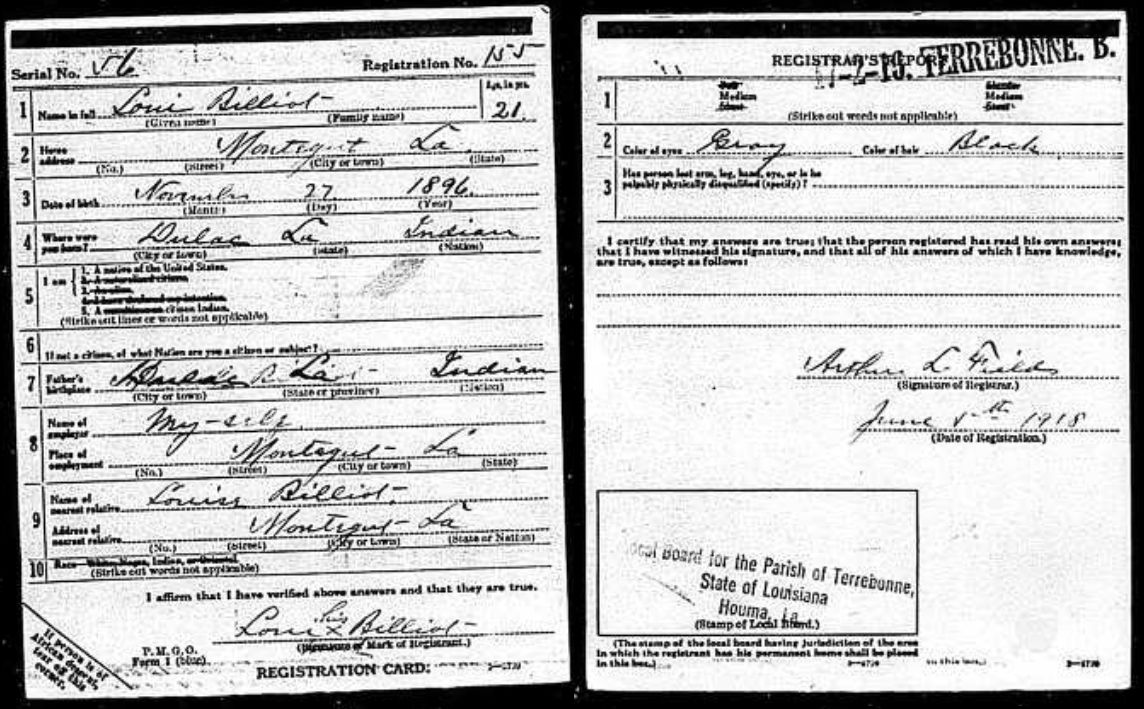 Serial No. 56 Registration No. 155
1 Name in full Loui Billiot Age, in yrs. 21
(Given name) (Family name)
2 Home address Montegut La.
(No.) (Street) (City or town) (State)
3 Date of birth November 27 1896
(Month) (Day) (Year)
4 Where were you born? Dulac La Indian
(City or town) (State) (Nation)
5 I am 1. A native of the United States.
2. A naturalized citizen.
3. An alien.
4. I have declared my intention.
5. A noncitizen or citizen Indian.
(Strike out lines or words not applicable)
6 If not a citizen, of what Nation are you a citizen or subject?
7 Father's birthplace Dulac La Indian
(City or town) (State or province) (Nation)
8 Name of employer My-self
Place of employment Montegut La
(No.) (Street) (City or town) (State)
9 Name of nearest relative Louisa Billiot.
Address of nearest relative Montegut La
(No.) (Street) (City or town) (State or Nation)
10 Race—White, Negro, Indian, or Oriental.
(Strike out words not applicable)
I affirm that I have verified above answers and that they are true.
Loui his x Billiot
(Signature or Mark of Registrant.)
P. M. G. O.
Form 1 (blue)
REGISTRATION CARD. 3—6739
If person is of
African descent,
tear off this
corner.
REGISTRAR'S REPORT
TERREBONNE. B.
1 Tall Slender
Medium Medium
Short Stout
(Strike out words not applicable)
2 Color of eyes Gray Color of hair Black
3 Has person lost arm, leg, hand, eye, or is he
palpably physically disqualified (specify)?
I certify that my answers are true; that the person registered has read his own answers;
that I have witnessed his signature, and that all of his answers of which I have knowledge,
are true, except as follows:
Arthur L. Fields
(Signature of Registrar.)
June 5th 1918
(Date of Registration.)
Local Board for the Parish of Terrebonne,
State of Louisiana
Houma, La.
(Stamp of Local Board.)
(The stamp of the local board having jurisdiction of the area
in which the registrant has his permanent home shall be placed
in this box.) 3—6739 in this box.) 3—6739